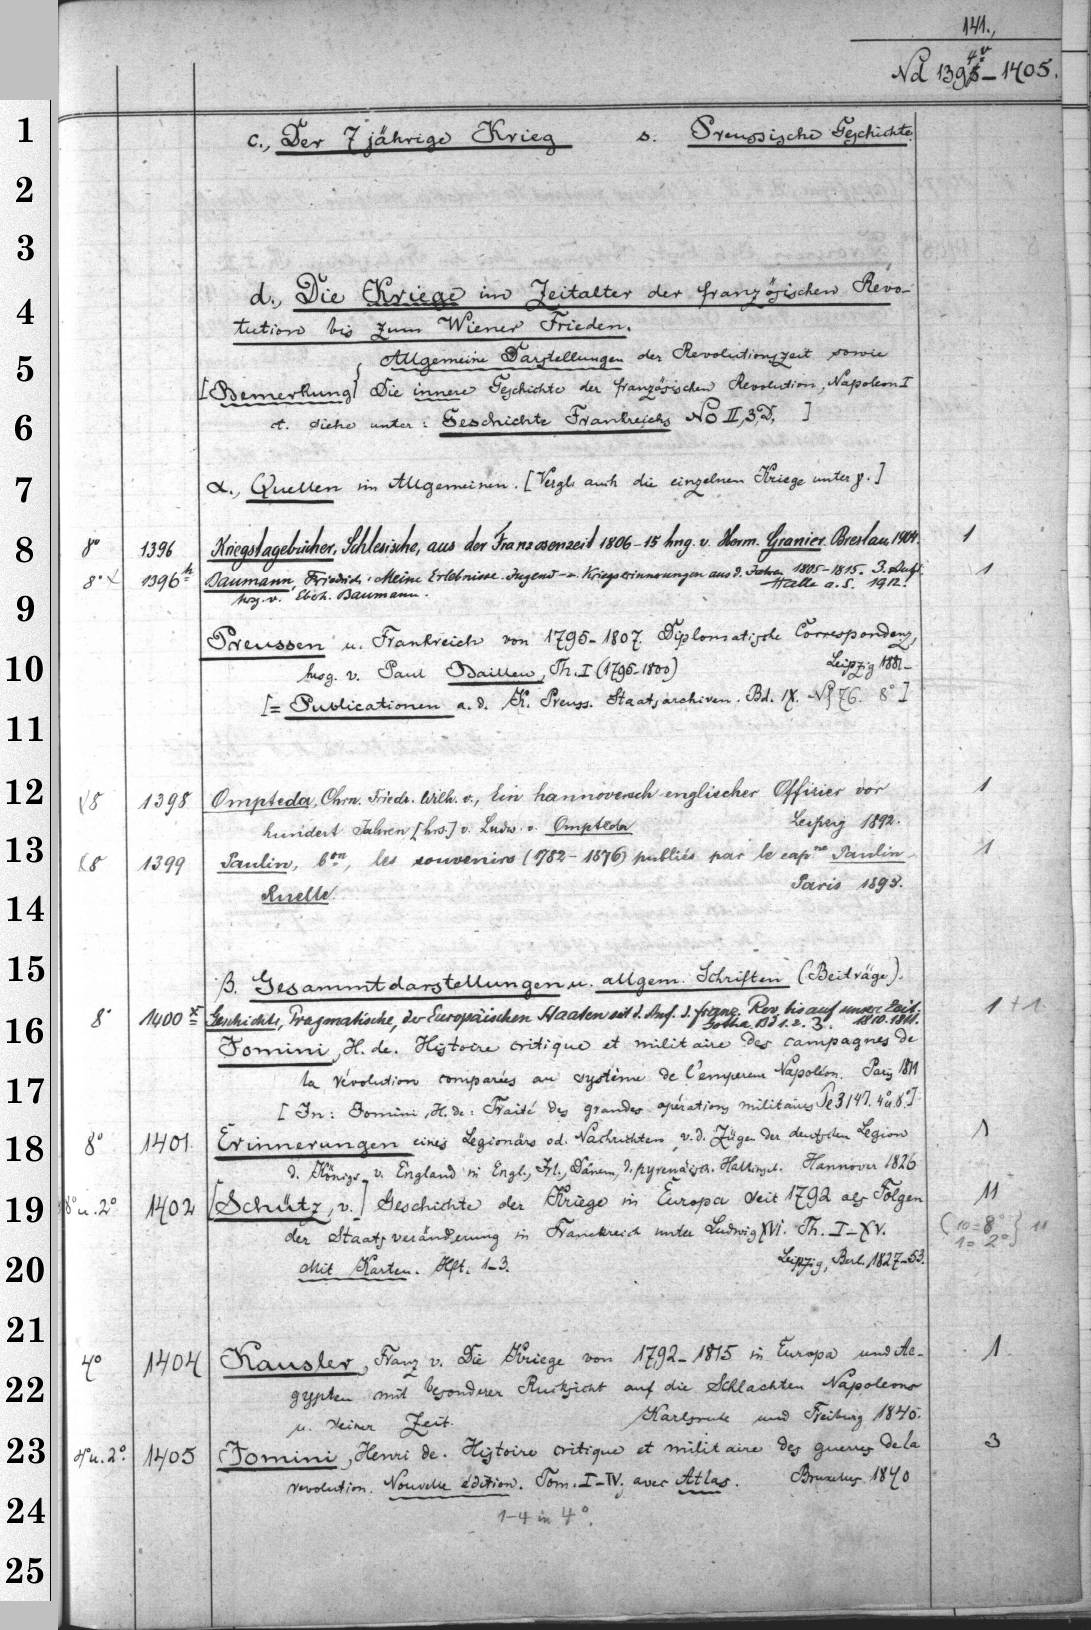 141.,
Nd 1395 – 1405.
1
c., Der 7 jährige Krieg s. Preussische Geschichte.
2
3
4
d., Die Kriege im Zeitalter der französischen Revo-
lution bis zum Wiener Frieden.
5
Allgemeine Darstellungen der Revolutionszeit sowie
[Bemerkung] Die innere Geschichte der französischen Revolution, Napoleon I
6
siehe unter: Geschichte Frankreichs No II,3,D. ]
7
α., Quellen im Allgemeinen. [Vergl. auch die einzelnen Kriege unter γ.]
8
8° 1396 Kriegstagebücher, Schlesische, aus der Franzosenzeit 1806–15 hng. v. Herm. Granier. Breslau, 1904. 1
8° 1396 Baumann, Friedrich: Meine Erlebnisse. Jugend- u. Kriegserinnerungen aus d. Jahren 1805–1815. 3. Aufl. 1
hrsg. v. Eberh. Baumann. Halle a. S. 1912.
9
Preussen u. Frankreich von 1795–1807. Diplomatische Correspondenz,
10
hrsg. v. Paul Bailleu, Th. I (1795–1800) Leipzig 1881–
[= Publicationen a. d. K. Preuss. Staatsarchiven. Bd. IX. 76. 8° ]
11
12
8 1398 Ompteda, Chrn. Friedr. Wilh. v., Ein hannoversch-englischer Offizier vor 1
hundert Jahren [hrs.] v. Ludw. v. Ompteda Leipzig 1892.
13
8 1399 Paulin, bon, les souvenirs (1782–1876) publiés par le capne Paulin- 1
14
Ruelle. Paris 1895.
15
β. Gesammtdarstellungen u. allgem. Schriften (Beiträge).
16
8° 1400 Geschichte, Pragmatische, der Europäischen Staaten seit d. Anf. d. franz. Rev. bis auf unsere Zeit. 1 + 1
Gotha. Bd 1. 2. 3. 1810. 1811.
Jomini, H. de. Histoire critique et militaire des campagnes de
17
la révolution comparées au système de l'empereur Napoléon. Paris 1811
[In: Jomini, H. de: Traité des grandes opérations militaires 3147. 4° u. 8°.]
18
8° 1401 Erinnerungen eines Legionärs od. Nachrichten v. d. Zügen der deutschen Legion 1
d. Königs v. England in Engl., Irl., Dänem., d. pyrenäisch. Halbinsel. Hannover 1826
19
8° u. 2° 1402 [Schütz, v.] Geschichte der Kriege in Europa seit 1792 als Folgen 11
der Staatsveränderung in Franckreich unter Ludwig XVI. Th. I–XV. (10 = 8° 1 = 2°) 11
20
Mit Karten. Hft. 1–3. Leipzig, Berl. 1827–53.
21
4° 1404 Kausler, Franz v. Die Kriege von 1792–1815 in Europa und Ae- 1
22
gypten mit besonderer Rücksicht auf die Schlachten Napoleons
u. seiner Zeit. Karlsruhe und Freiburg 1840.
23
4° u. 2° 1405 Jomini, Henri de. Histoire critique et militaire des guerres de la 3
revolution. Nouvelle édition. Tom. I–IV, avec Atlas. Bruxelles 1840
24
1–4 in 4°.
25